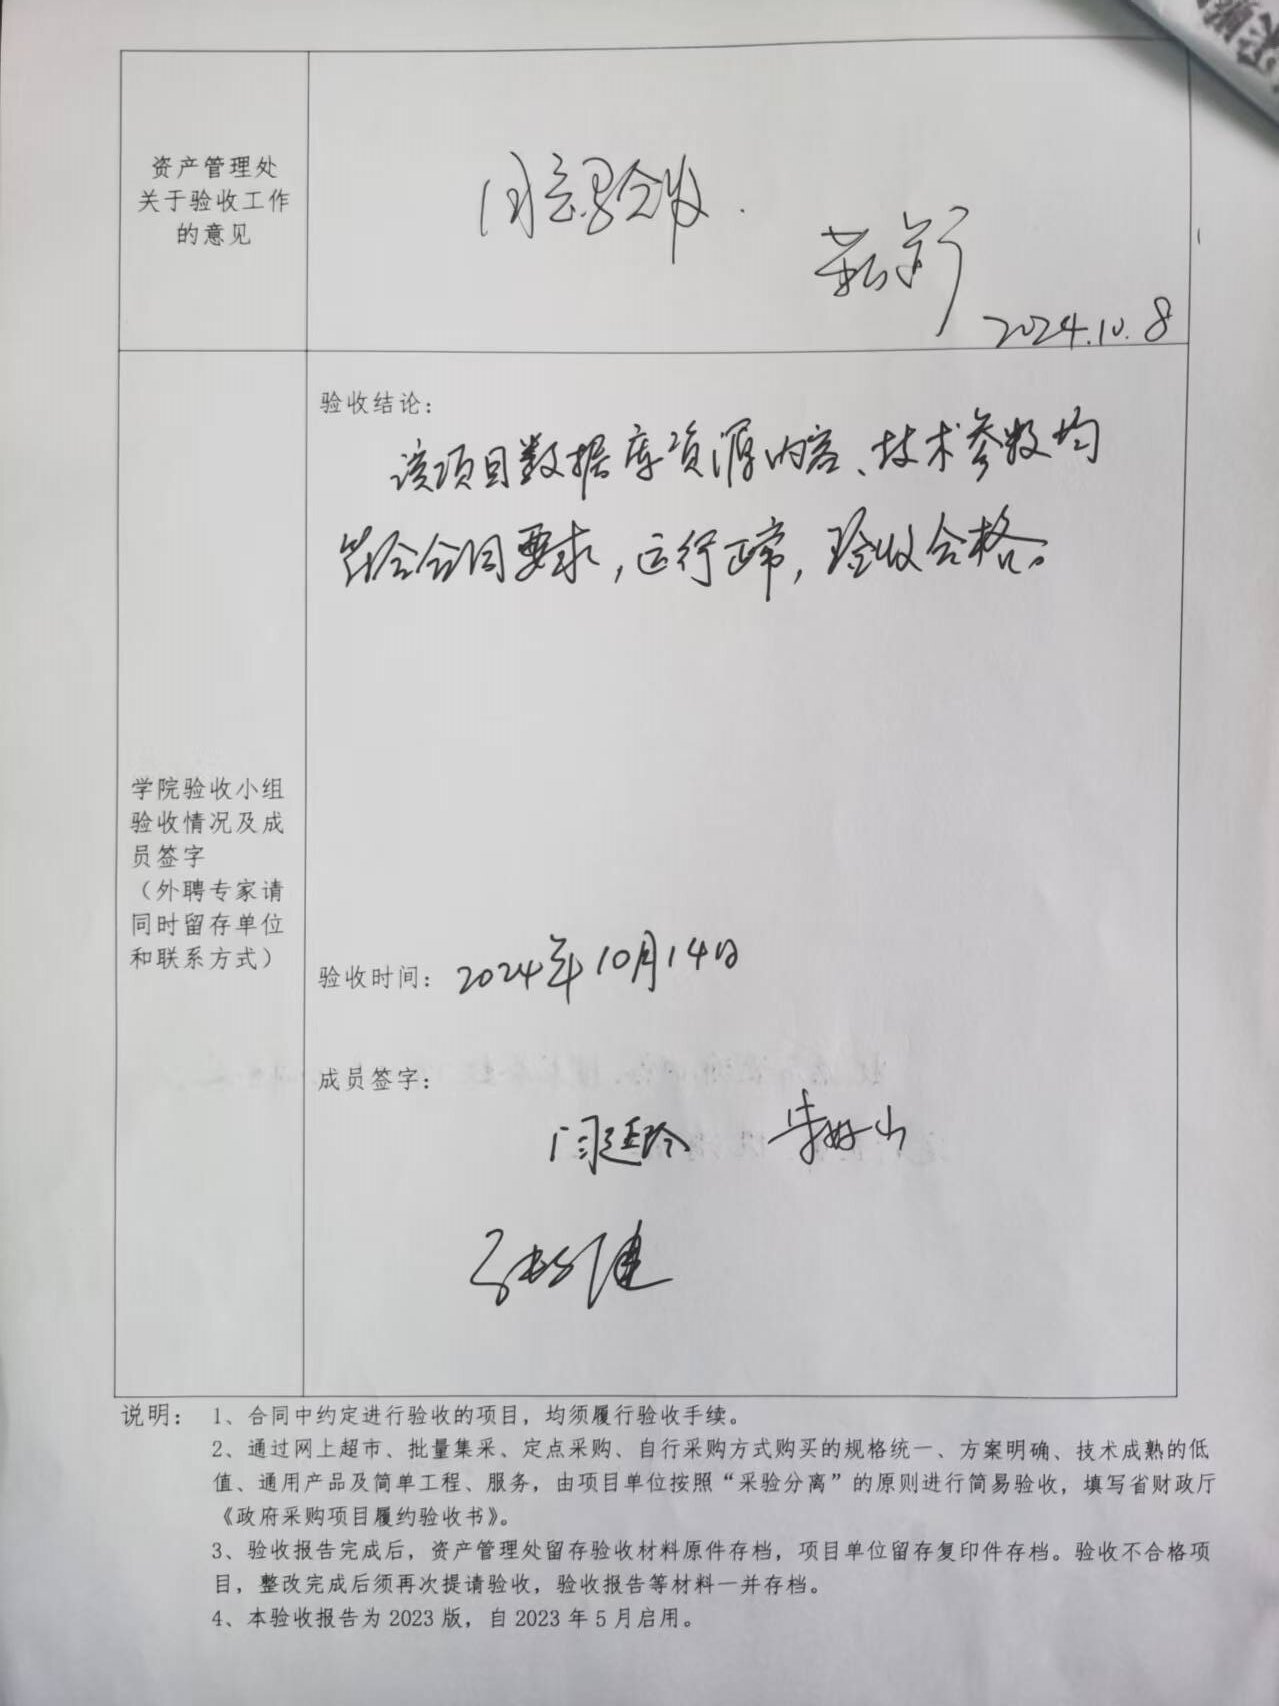 资产管理处
关于验收工作
的意见
同意验收.
2024.10.8
验收结论:
该项目数据库资源内容、技术参数均
符合合同要求,运行正常,验收合格。
学院验收小组
验收情况及成
员签字
(外聘专家请
同时留存单位
和联系方式)
验收时间: 2024年10月14日
成员签字:
说明: 1、合同中约定进行验收的项目,均须履行验收手续。
2、通过网上超市、批量集采、定点采购、自行采购方式购买的规格统一、方案明确、技术成熟的低
值、通用产品及简单工程、服务,由项目单位按照“采验分离”的原则进行简易验收,填写省财政厅
《政府采购项目履约验收书》。
3、验收报告完成后,资产管理处留存验收材料原件存档,项目单位留存复印件存档。验收不合格项
目,整改完成后须再次提请验收,验收报告等材料一并存档。
4、本验收报告为 2023 版,自 2023 年 5 月启用。